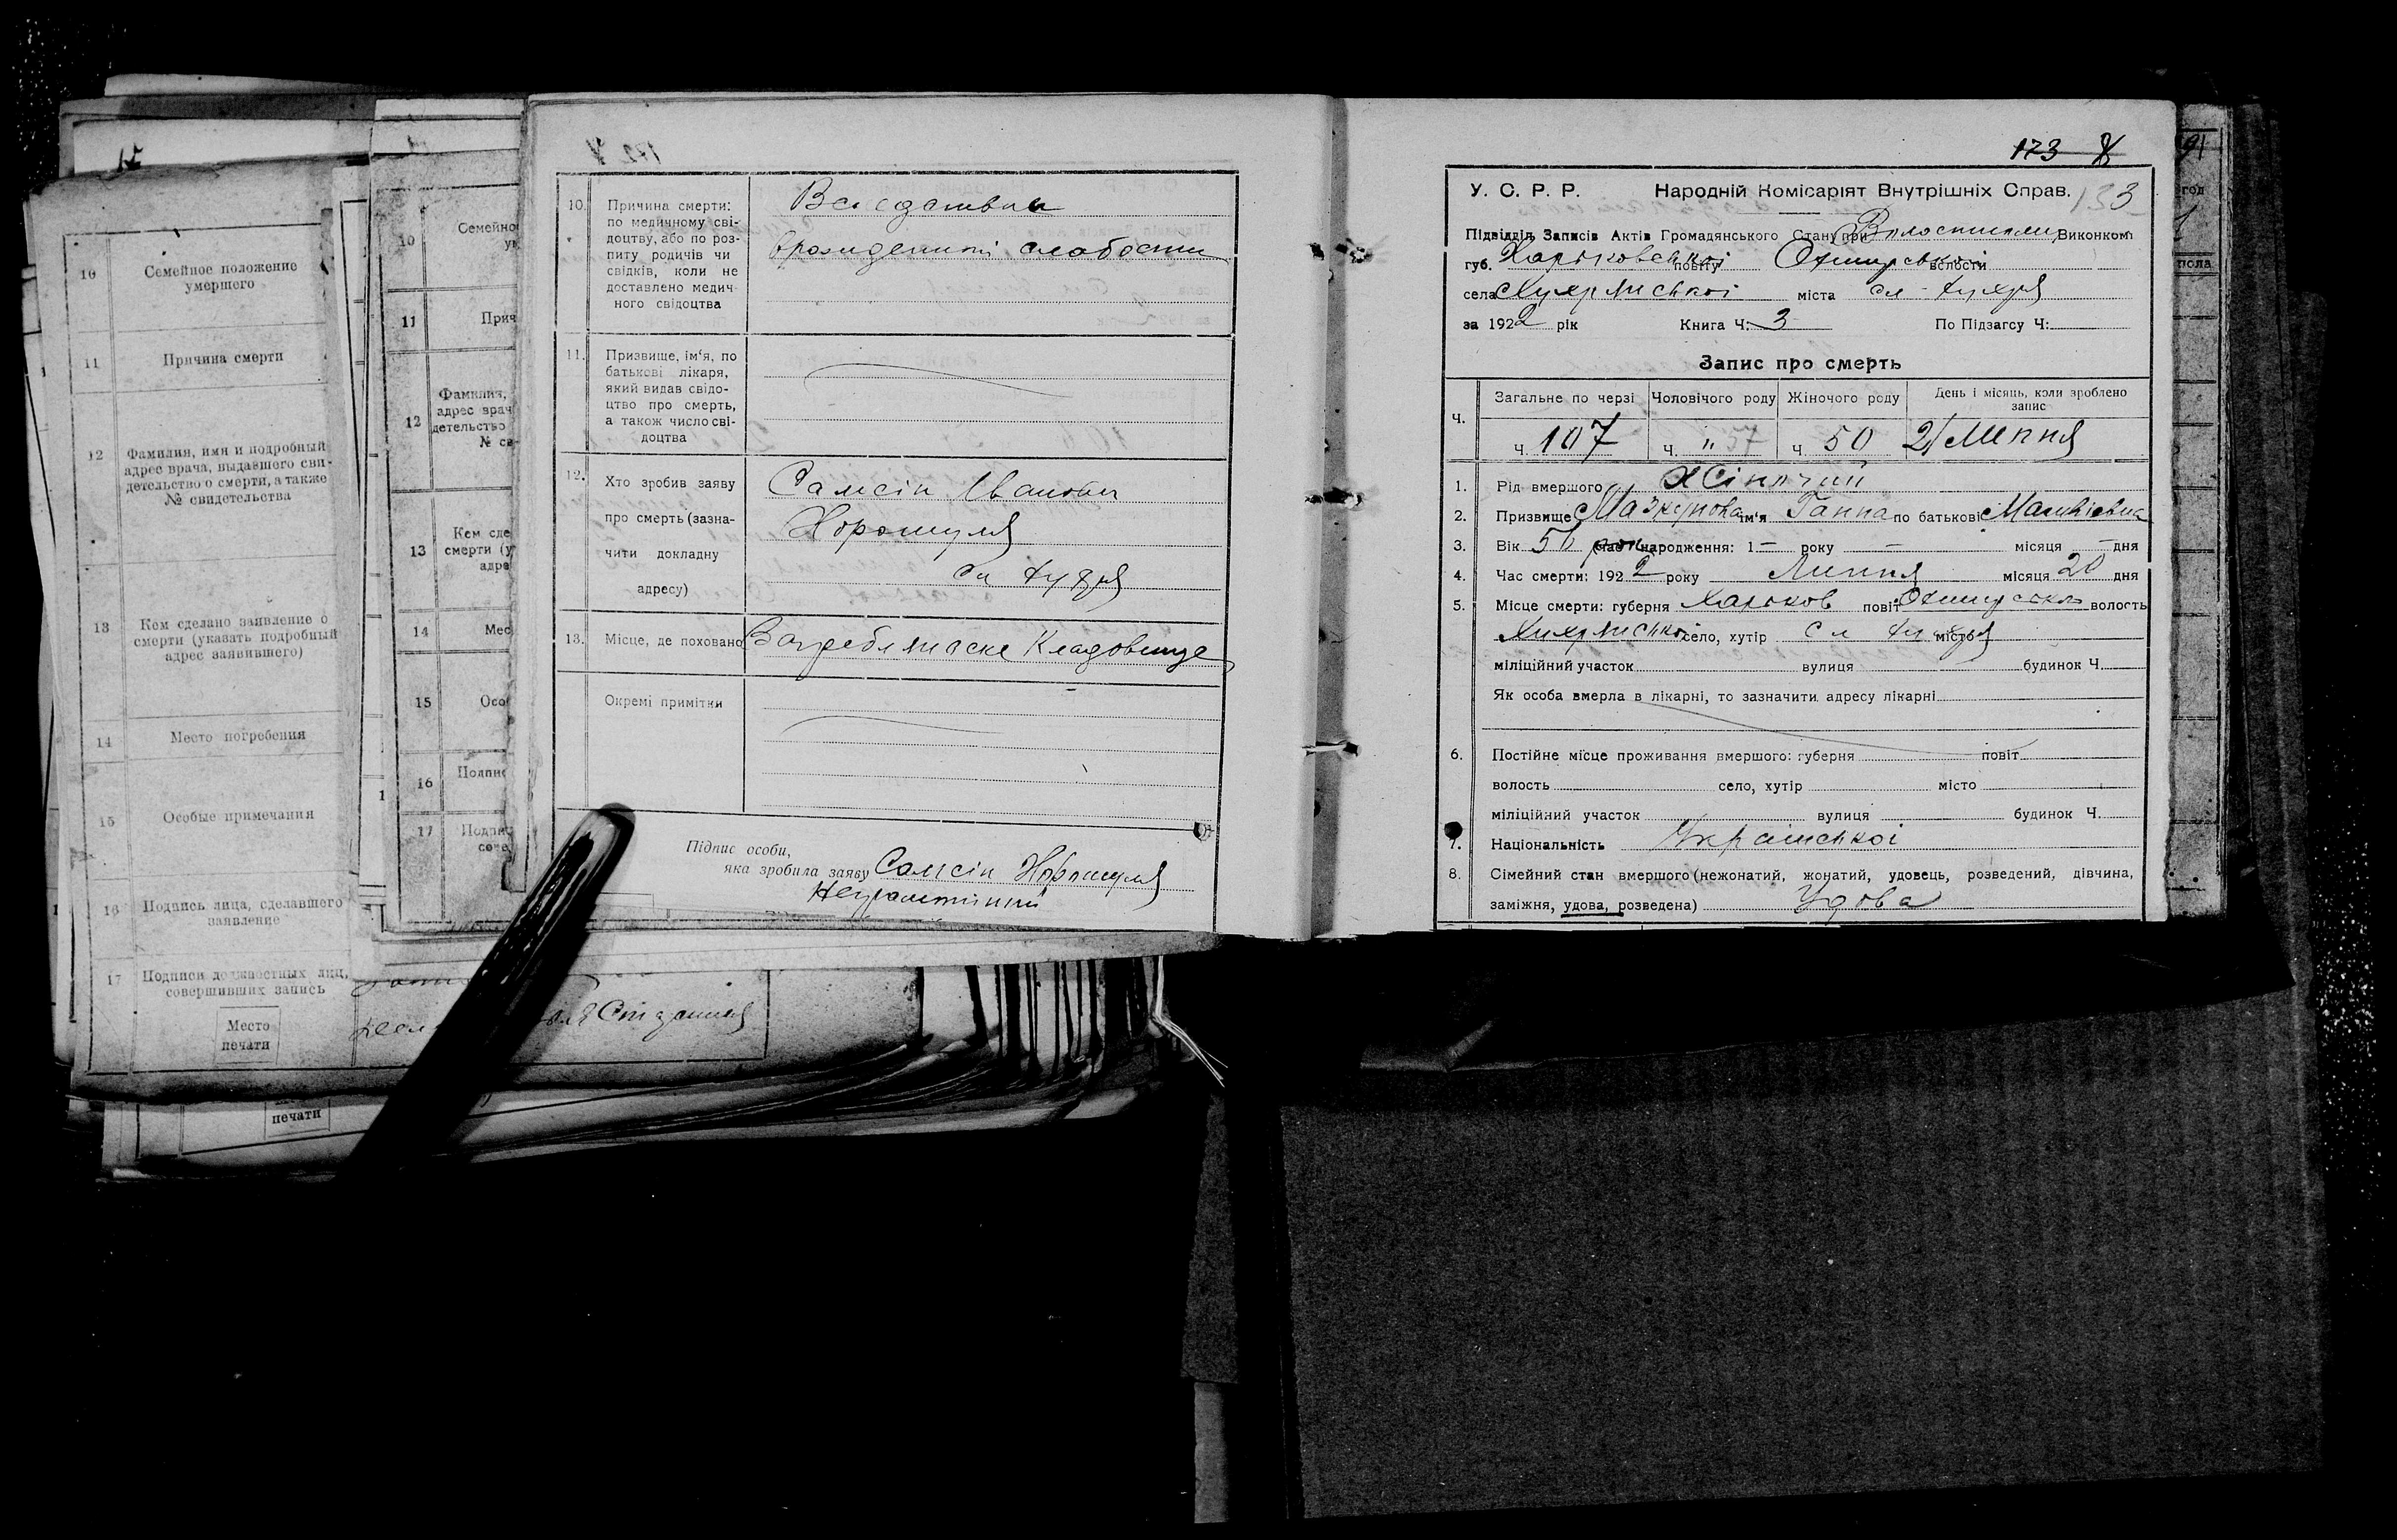 10
Семейное положение
умершего
11
Причина смерти
12
Фамилия, имя и подробный
адрес врача, выдавшего сви-
детельство о смерти, а также
№ свидетельства
13
Кем сделано заявление о
смерти (указать подробный
адрес заявившего)
14
Место погребения
15
Особые примечания
16
Подпись лица, сделавшего
заявление
17
Подписи должностных лиц,
совершивших запись
Место
печати
печати
10
Семейно
11
Прич
12
Фамилия,
адрес врач
детельство
№ св
13
Кем сде
смерти (у
адре
14
Мес
15
Осо
16
Подпис
17
Подпи
сове
10.
Причина смерти:
по медичному сві-
доцтву, або по роз-
питу родичів чи
свідків, коли не
доставлено медич-
ного свідоцтва
слабости
11.
Призвище, ім'я, по
батькові лікаря,
який видав свідо-
цтво про смерть,
а також число сві-
доцтва
12.
Хто зробив заяву
про смерть (зазна-
чити докладну
адресу)
Самсін Іванович
Хорошуля
сл Хухря
13.
Місце, де поховано
Кладовище
Окремі примітки
Підпис особи,
яка зробила заяву Самсін Хорошуля
Неграмотний
173
У. С. Р. Р. Народній Комісаріят Внутрішніх Справ. 133
Підвідділ Записів Актів Громадянського Стану при Виконком
губ. Харьковської повіту Охтирської волості
села Хухрянської міста сл. Хухря
за 1922 рік Книга Ч: 3 По Підзагсу Ч:
Запис про смерть
Ч.
Загальне по черзі
Чоловічого роду
Жіночого роду
День і місяць, коли зроблено
запис
Ч. 107
Ч. " 57
Ч. 50
21 Липня
1. Рід вмершого Жіночий
2. Призвище ім'я Ганна по батькові Матвіевна
3. Вік 50 рок Час народження: 1 — року — місяця — дня
4. Час смерти: 1922 року Липня місяця 20 дня
5. Місце смерти: губерня Харьков повіт Охтирська волость
Хухрянської село, хутір сл Хухря місто
міліційний участок вулиця будинок Ч.
Як особа вмерла в лікарні, то зазначити адресу лікарні
6. Постійне місце проживання вмершого: губерня повіт
волость село, хутір місто
міліційний участок вулиця будинок Ч.
7. Національність Украінської
8. Сімейний стан вмершого (нежонатий, жонатий, удовець, розведений, дівчина,
заміжня, удова, розведена) Удова